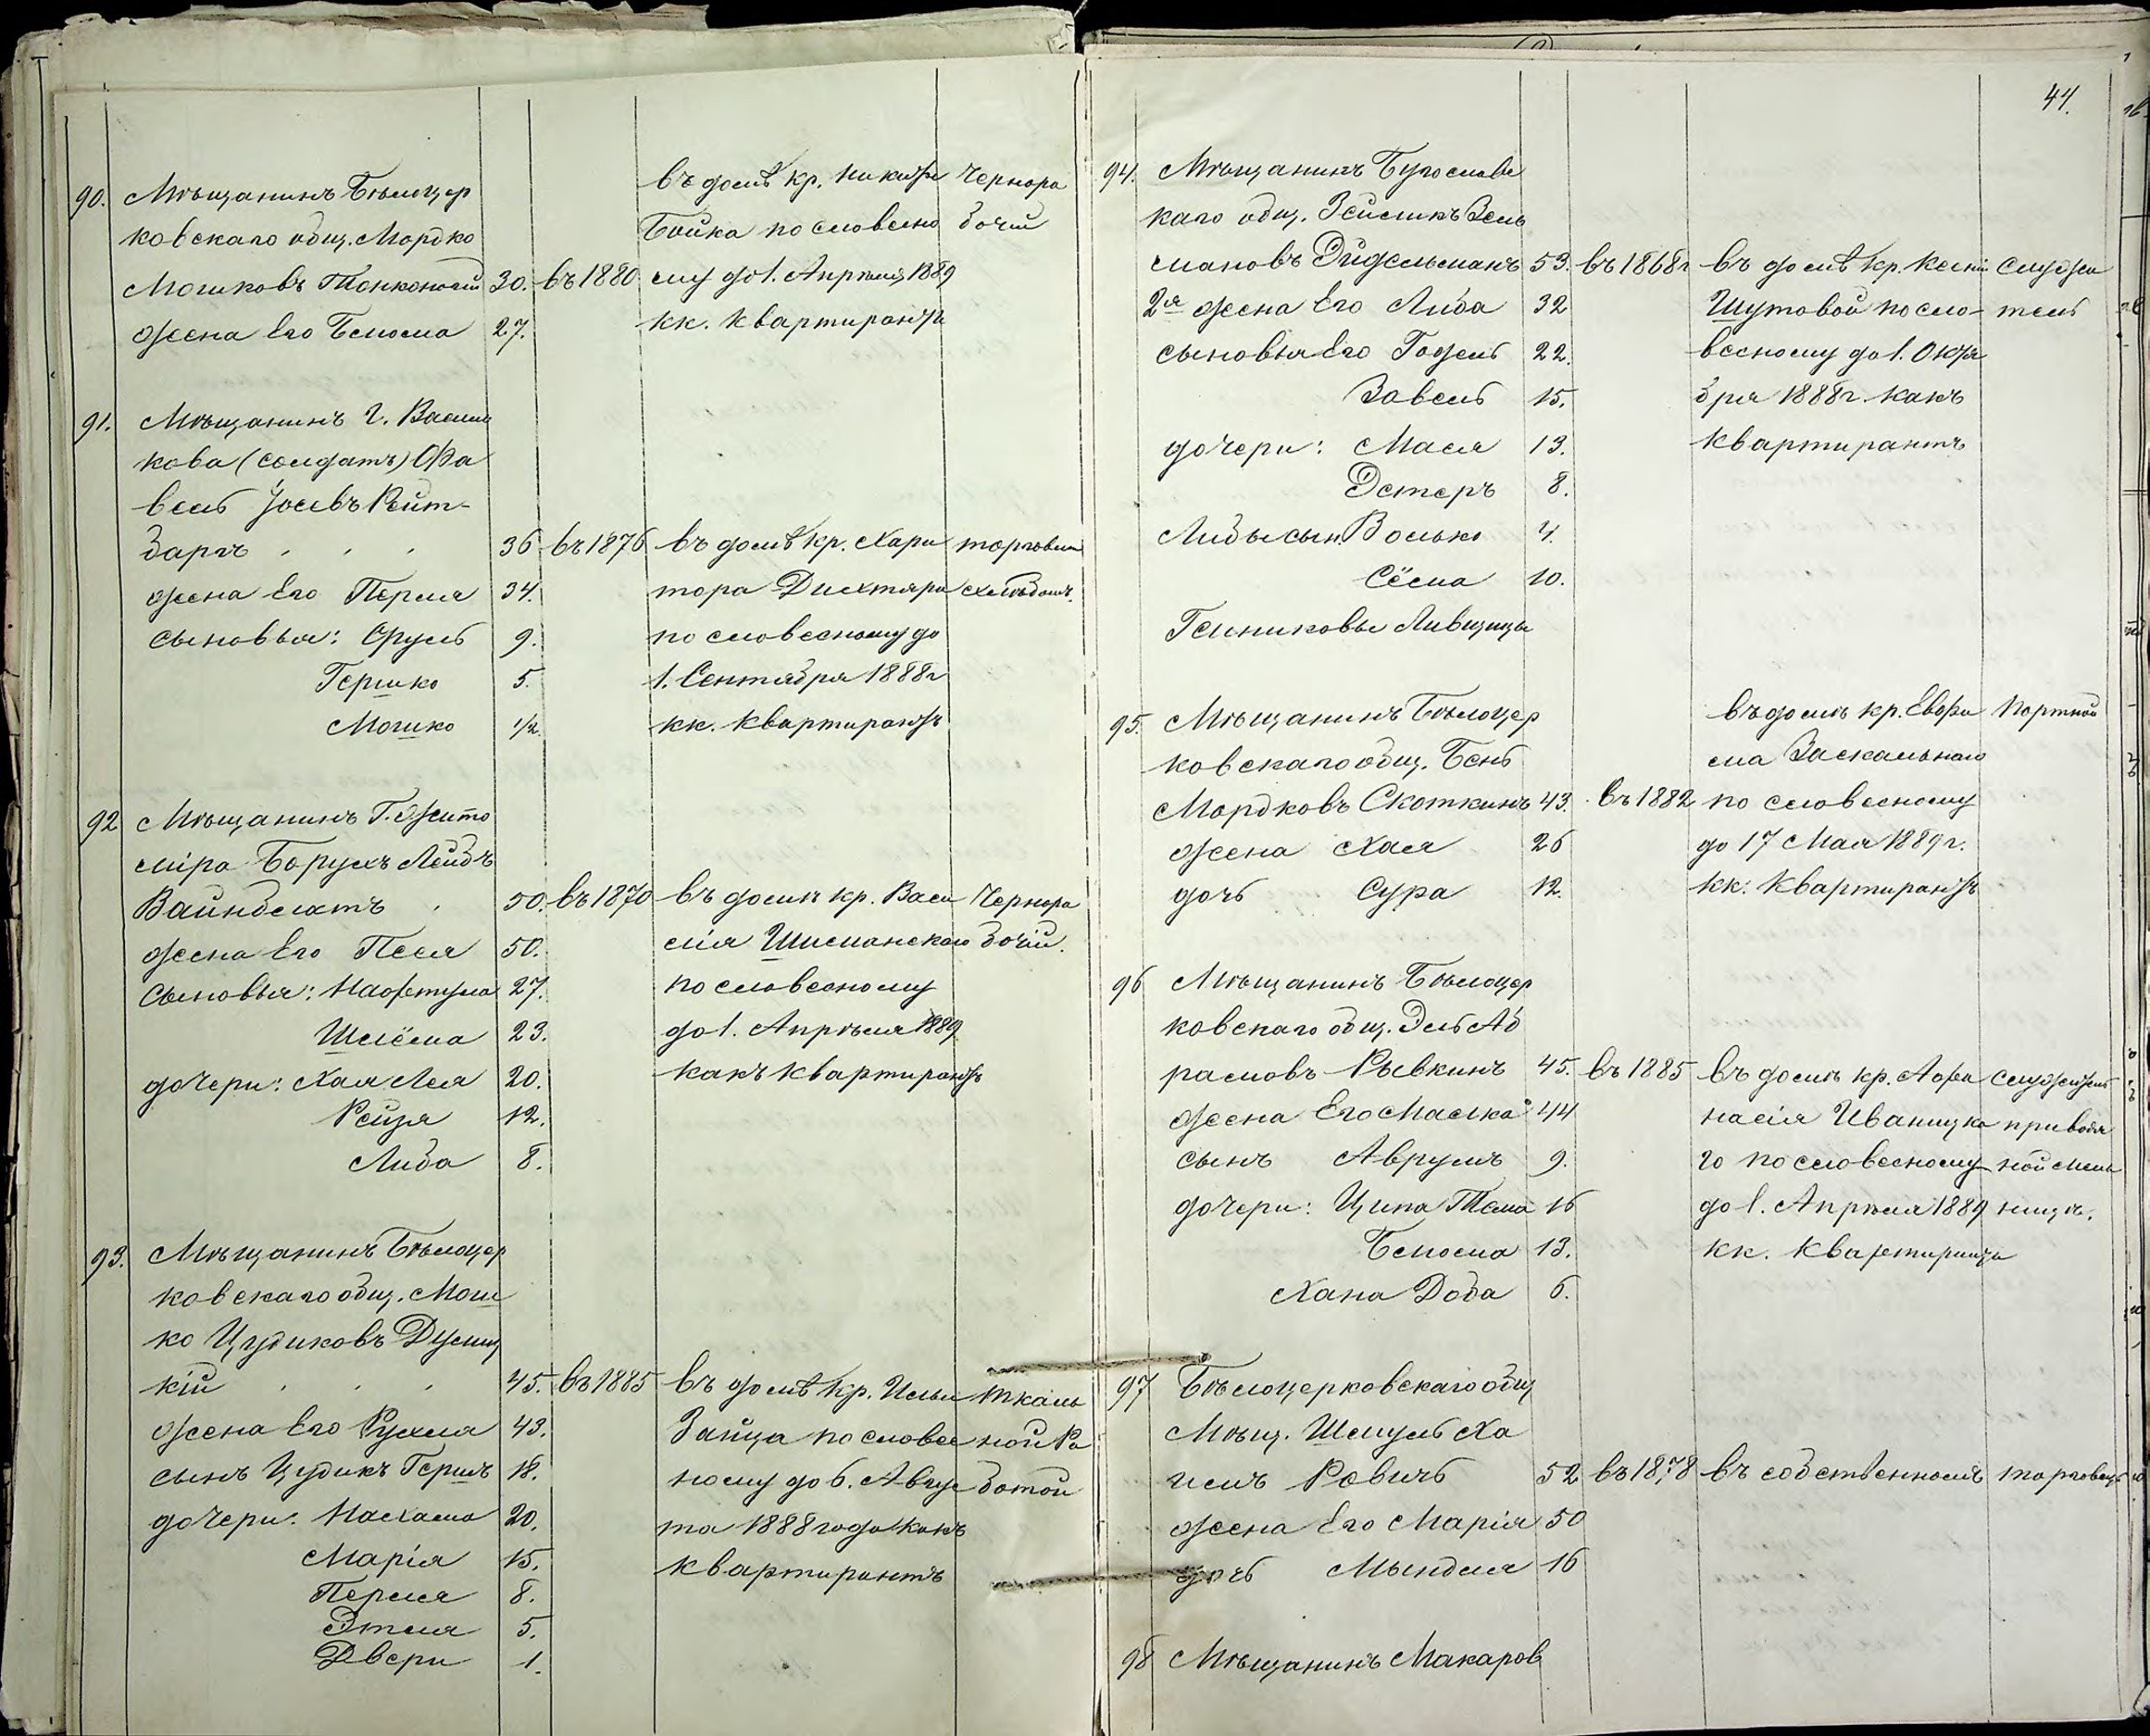 90. Мѣщанинъ Бѣлоцер въ домѣ кр. Никиты Чернора
ковскаго общ. Мордко Бойка по словесно бочій
Мошковъ Тонконогій 30. въ 1880 му до 1. Апрѣля 1889
жена Его Блюма 27. кк. квартирантъ
91. Мѣщанинъ г. Василь
кова (солдатъ) Фа
вель Іосевъ Рейт-
баргъ 36 въ 1876 въ домѣ кр. Хари торговля
жена Его Перля 34. тора Дихтяря хлѣбомъ.
сыновья: Сруль 9. по словесному до
Гершко 5. 1. Сентября 1888 г
Мошко 1/2. кк. квартирантъ
92 Мѣщанинъ Г. Жито
міра Борухъ Лейбъ
Вайнблатъ 50. въ 1870 въ домѣ кр. Васи Чернора
жена Его Песя 50. лія Шиманскаго бочій.
Сыновья: Нафтула 27. по словесному
Шлёма 23. до 1. Апрѣля 1889
дочери: Хая Лея 20. какъ квартирантъ
Рейзя 12.
Либа 8.
93. Мѣщанинъ Бѣлоцер
ковскаго общ. Мош
ко Цудиковъ Дулиц
кій 45. въ 1885 въ домѣ кр. Ильи ткаль
жена Его Рухля 43. Зайца по словес ной Ра
сынъ Цудикъ Гершъ 18. ному до 6. Авгус ботой
дочери: Нахама 20. та 1888 года какъ
Марія 15. квартирантъ
Перля 8.
Этля 5.
Двери 1.
44.
94. Мѣщанинъ Богуславс
каго общ. Зейликъ Зель
мановъ Эйдельманъ 53. въ 1868 г въ домѣ кр. Ксеніи служи
2я жена Его Либа 32 Шутовой по сло- тель
сыновья Его Годель 22. весному до 1. Октя
Завель 15. бря 1888 г. какъ
дочери: Мася 13. квартирантъ
Эстеръ 8.
Либы сын. Волько 4.
Сёма 10.
Гениковы Ливщицы
95. Мѣщанинъ Бѣлоцер въ домѣ кр. Евфи Портной
ковскаго общ. Бень ма Заскальнаго
Мордковъ Скоткинъ 43. въ 1882 по словесному
жена Хая 26 до 17 Мая 1889 г.
дочь Сура 12. кк. квартирантъ
96 Мѣщанинъ Бѣлоцер
ковскаго общ. Эль Аб
рамовъ Рывкинъ 45. въ 1885 въ домѣ кр. Афа служитель
жена Его Малка 44 насія Иваницка при водя
сынъ Аврумъ 9. го по словесному ной мель
дочери: Ципа Тема 16 до 1. Апрѣля 1889 ницѣ.
Блюма 13. кк. квартиранта
Хана Доба 6.
97 Бѣлоцерковскаго общ
Мѣщ. Шмуль Ха
имъ Ровичъ 52 въ 1878 въ собственномъ торговецъ
жена Его Марія 50
дочь Мындля 16
98 Мѣщанинъ Макаров